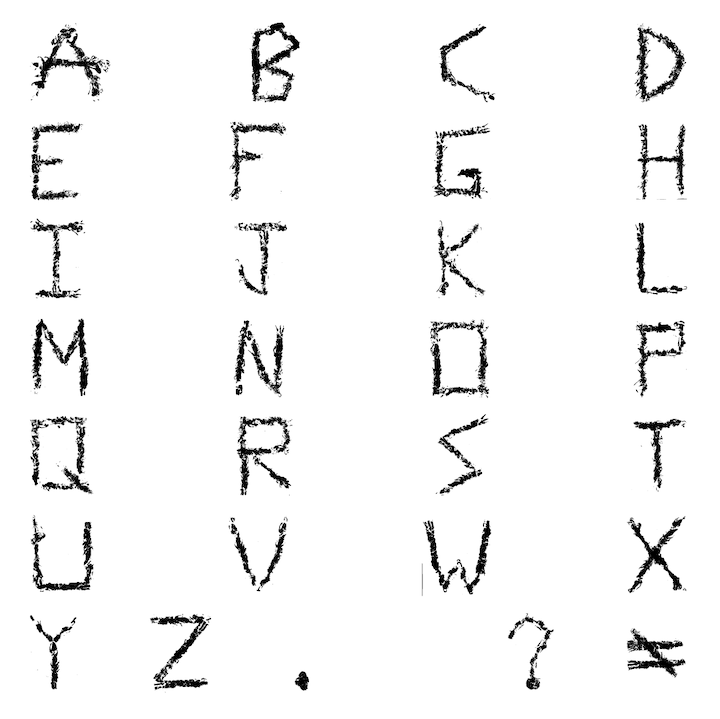 A B C D
E F G H
I J K L
M N O P
Q R S T
U V W X
Y Z . ? ≠